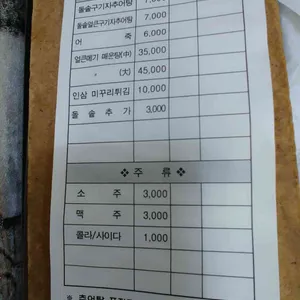 돌솥구기자추어탕 7,000
돌솥얼큰구기자추어탕 7,000
어 죽 6,000
얼큰메기 매운탕(中) 35,000
〃 (大) 45,000
인삼 미꾸리튀김 10,000
돌솥추가 3,000
❖ 주 류 ❖
소 주 3,000
맥 주 3,000
콜라/사이다 1,000
※ 추어탕